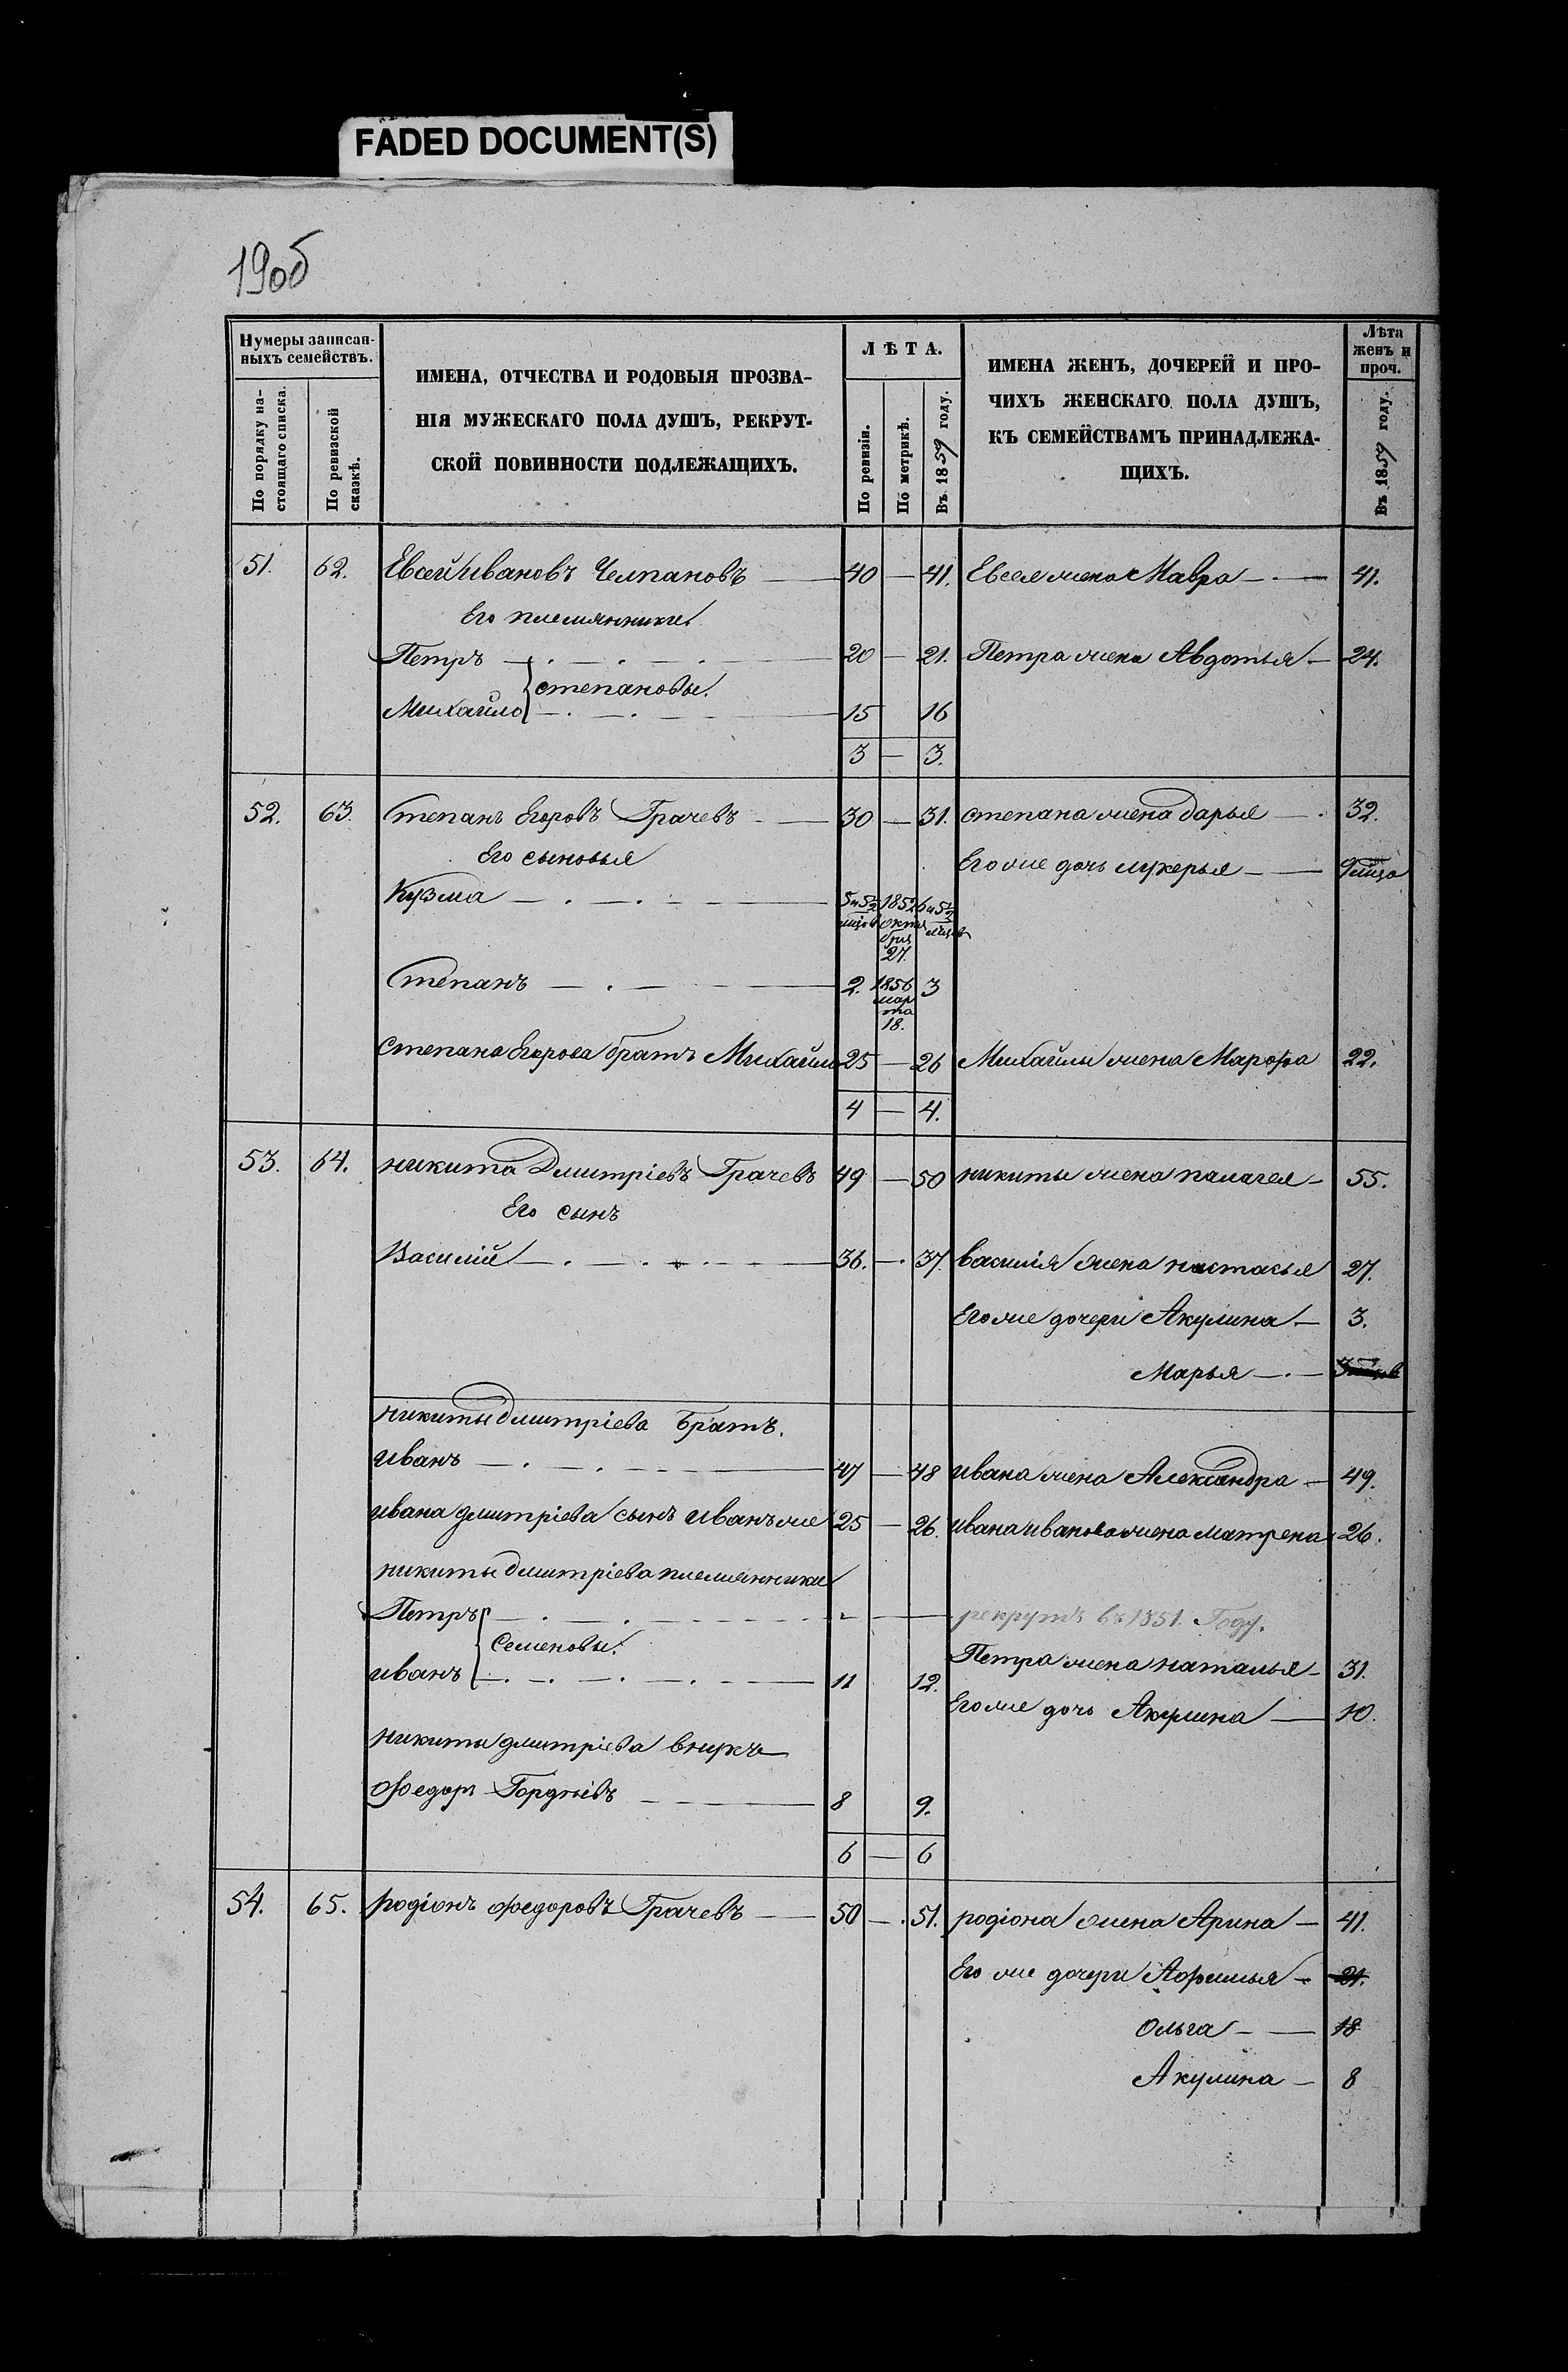 FADED DOCUMENT(S)
190б
Нумеры записан-
ныхъ семействъ.
По порядку на-
стоящаго списка.
По ревизской
сказкѣ.
ИМЕНА, ОТЧЕСТВА И РОДОВЫЯ ПРОЗВА-
НІЯ МУЖЕСКАГО ПОЛА ДУШЪ, РЕКРУТ-
СКОЙ ПОВИННОСТИ ПОДЛЕЖАЩИХЪ.
ЛѢТА.
По ревизіи.
По метрикѣ.
Въ 1859 году.
ИМЕНА ЖЕНЪ, ДОЧЕРЕЙ И ПРО-
ЧИХЪ ЖЕНСКАГО ПОЛА ДУШЪ,
КЪ СЕМЕЙСТВАМЪ ПРИНАДЛЕЖА-
ЩИХЪ.
Лѣта
женъ и
проч.
Въ 1859 году.
51. 62. Евсей Ивановъ Челпановъ — 40 — 41. Евсея жена Мавра — 41.
Его племянники
Петръ — 20 — 21. Петра жена Авдотья — 24.
степановы.
Михайло — 15 16
3 — 3.
52. 63. Степанъ Егоровъ Грачевъ — 30 — 31. степана жена дарья — 32.
Его сыновья
Его же дочь лукерья —
Кузма — 5 и 5½ 1852 6 и 5½
октя
бря
27.
Степанъ — 2. 1856 3
мар
та
18.
Степана Егорова братъ Михайло 25 — 26 Михайлы жена Марфа 22.
4 — 4.
53. 64. никита Дмитріевъ Грачевъ 49 — 50 никиты жена палагея — 55.
Его сынъ
Василій — 36. — 37. василія жена настасья 27.
Его же дочери Акулина — 3.
Марья —
никиты дмитріева братъ.
иванъ — 47 — 48 ивана жена Александра — 49.
ивана дмитріева сынъ иванъ же 25 — 26. ивана иванова жена матрена 26.
никиты дмитріева племянники
Петръ — рекрутъ въ 1851. Году.
Семеновы.
Петра жена наталья — 31.
иванъ — 11 12.
Его же дочь Акулина — 10.
никиты дмитріева внукъ
Федоръ Гордѣевъ — 8 9.
6 — 6
54. 65. родіонъ федоровъ Грачевъ — 50 — 51. родіона жена Арина — 41.
Его же дочери Афимья — 21.
Ольга — 18
Акулина — 8